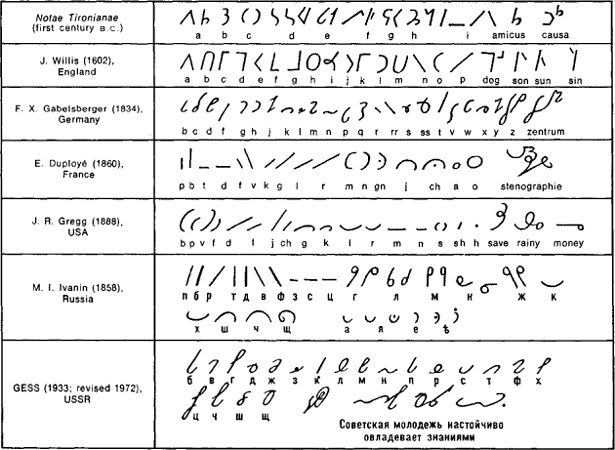 Notae Tironianae
(first century B.C.)
a b c d e f g h i amicus causa
J. Willis (1602),
England
a b c d e f g h i j k l m n o p dog son sun sin
F. X. Gabelsberger (1834),
Germany
b c d f g h j k l m n p q r rr s ss t v w x y z zentrum
E. Duployé (1860),
France
p b t d f v k g l r m n gn j ch a o stenographie
J. R. Gregg (1888),
USA
b p v f d t j ch g k l r m n s sh h save rainy money
M. I. Ivanin (1858),
Russia
п б р т д в ф з с ц г л м н ж к
х ш ч щ а я е ѣ
GESS (1933; revised 1972),
USSR
б в г д ж з к л м н п р с т ф х
ц ч ш щ
Советская молодежь настойчиво
овладевает знаниями